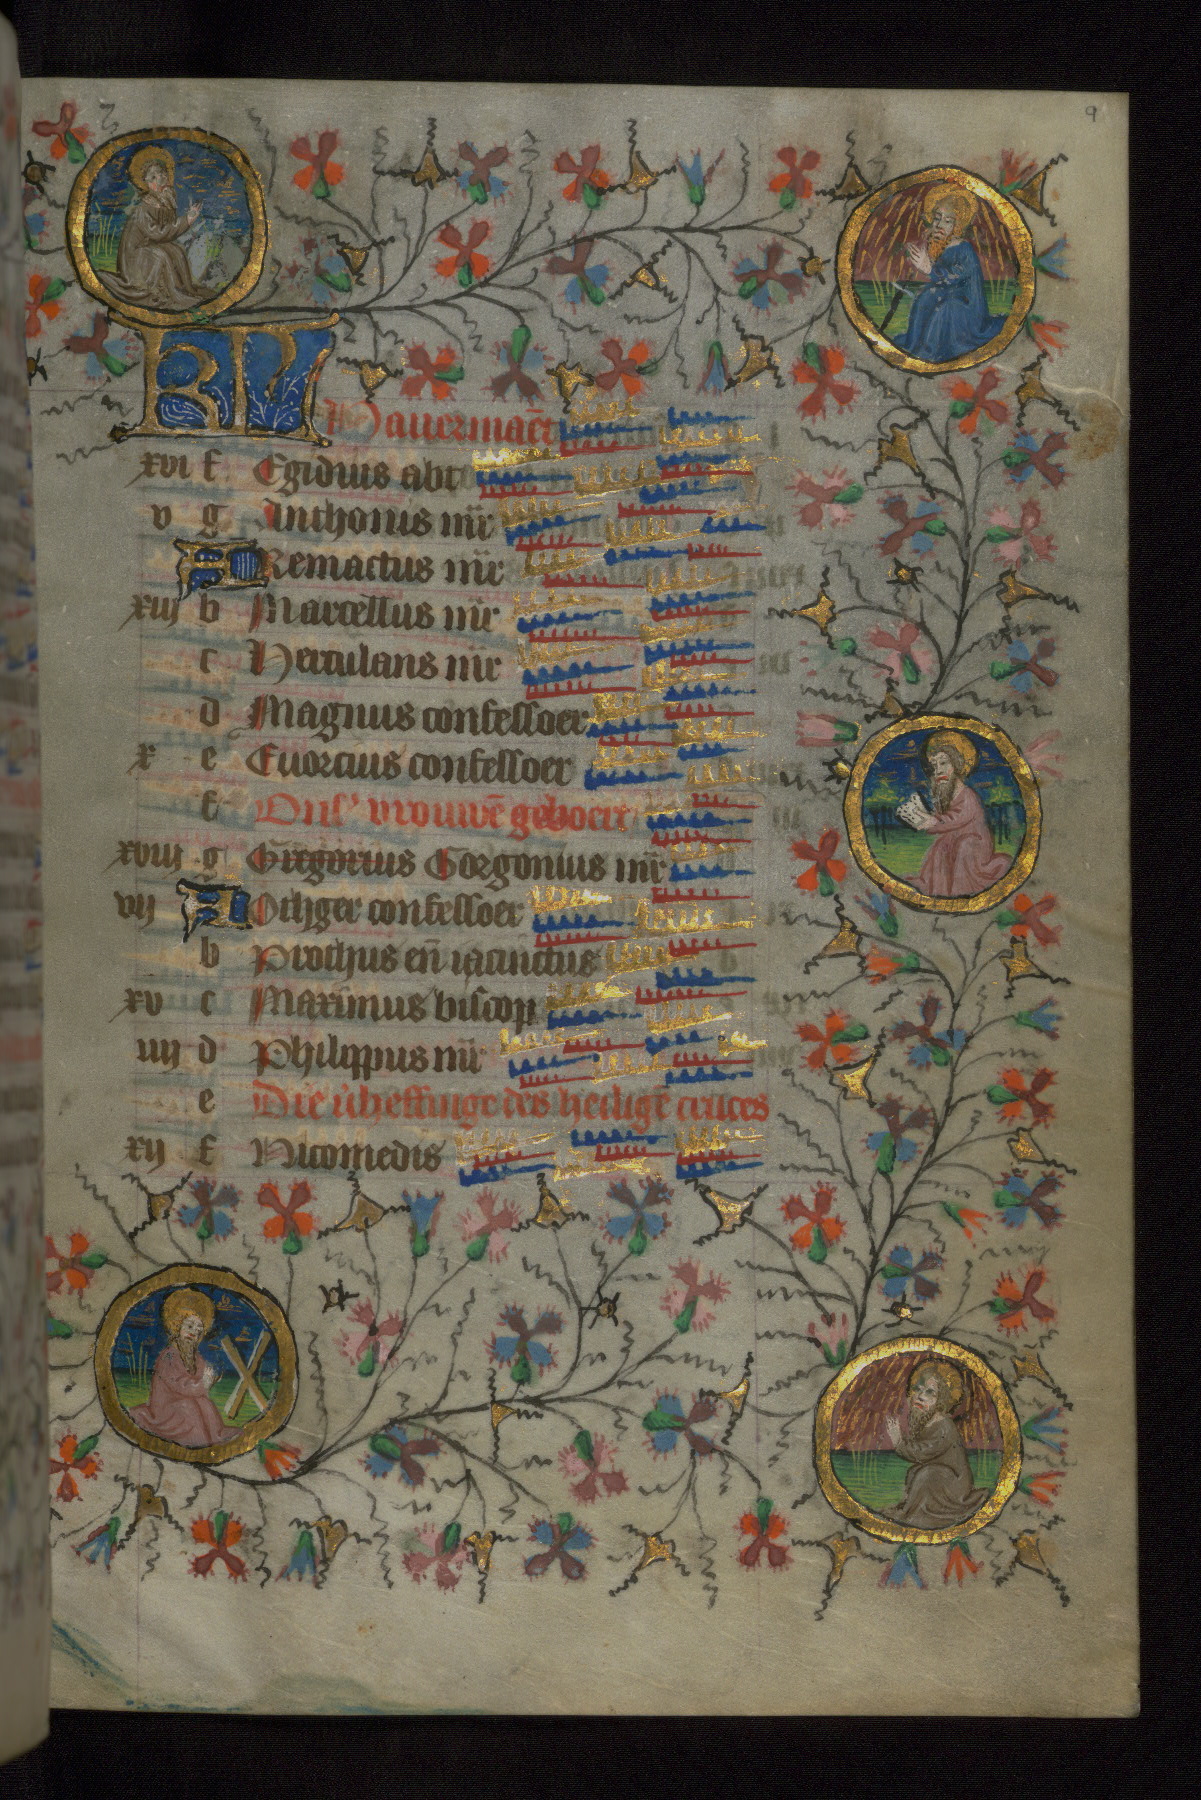 9
KL Hauermaēt
xvi f Egidius abt
v g Anthonis m̄r
A Remactus m̄r
xiij b Marcellus m̄r
c Herculans m̄r
d Magnus confessoer
x e Euorcius confessoer
f Onſ' vrouwē geboert
xviij g Gregorius Gorgonius m̄r
vij A Othger confessoer
b Prothus en̄ iacinctus
xv c Maximus biscop
iiij d Philippus m̄r
e Die v̓heffinge des heiligē cruces
xij f Nicomedis